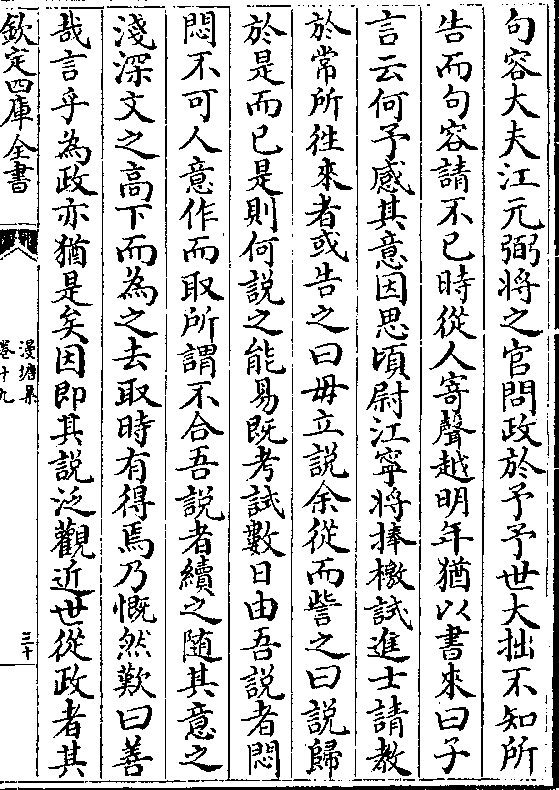 句容大夫江元弼将之官問政於予予世大拙不知所
告而句容請不已時從人寄聲越明年猶以書來曰子
言云何予感其意因思頃尉江寧将捧檄試進士請教
於常所徃來者或告之曰毋立説余從而訾之曰説歸
於是而已是則何説之能易既考試數日由吾説者悶
悶不可人意作而取所謂不合吾説者續之随其意之
淺深文之髙下而為之去取時有得焉乃慨然歎曰善
哉言乎為政亦猶是矣因即其説泛觀近世從政者其
欽定四庫全書
漫塘集
卷十九
三十